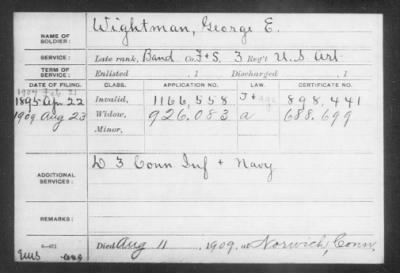 NAME OF SOLDIER: Wightman, George E.
SERVICE: Late rank, Band Co. F+S, 3 Reg't U.S. Art
TERM OF SERVICE: Enlisted , 1 Discharged , 1
DATE OF FILING. CLASS. APPLICATION NO. LAW. CERTIFICATE NO.
1907 Feb 21
1895 Apr 22 Invalid, 1166,558 898,441
1909 Aug 23 Widow, 926.083 a 688.699
Minor,
ADDITIONAL SERVICES: D 3 Conn Inf + Navy
REMARKS:
Died Aug 11, 1909, at Norwich, Conn.